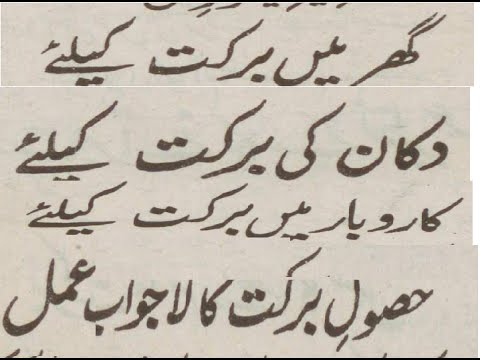 گھر میں برکت کیلئے
دکان کی برکت کیلئے
کاروبار میں برکت کیلئے
حصولِ برکت کا لاجواب عمل